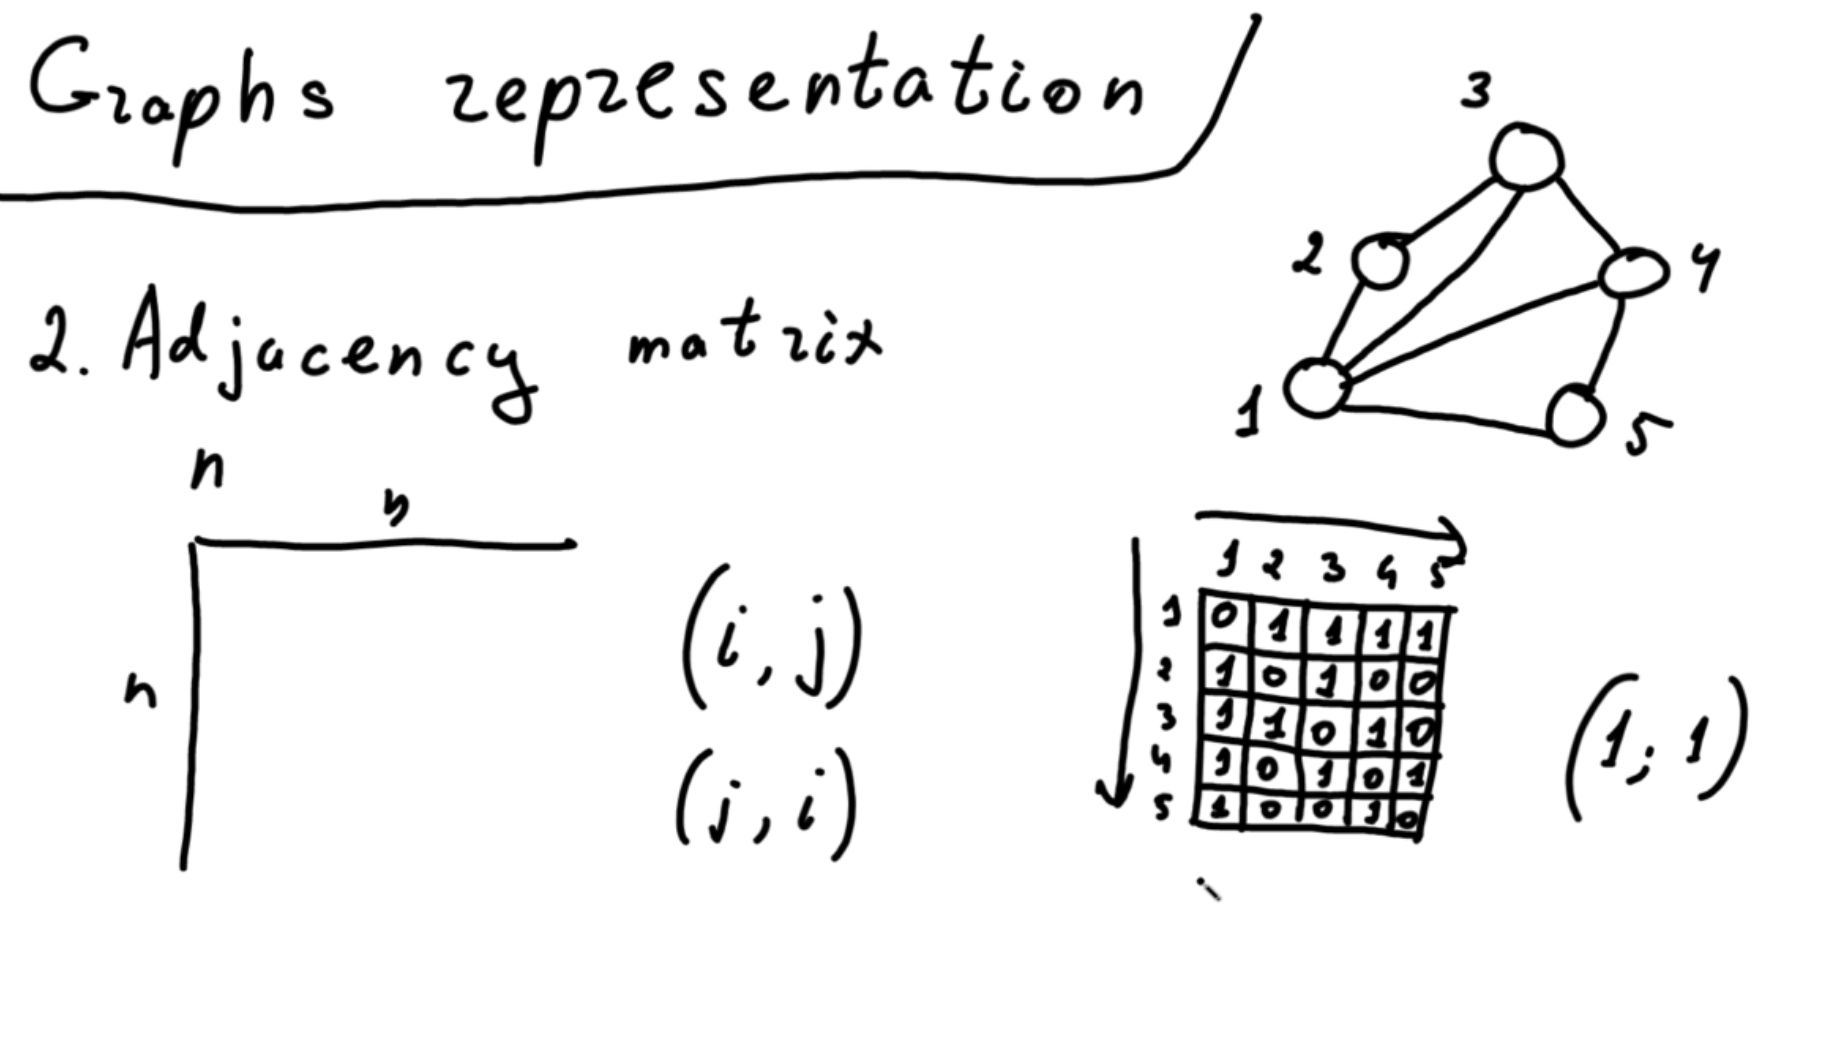 Graphs representation
3
2
4
1
5
2. Adjacency matrix
n
n
n
(i, j)
(j, i)
1 2 3 4 5
1 0 1 1 1 1
2 1 0 1 0 0
3 1 1 0 1 0
4 1 0 1 0 1
5 1 0 0 1 0
(1; 1)